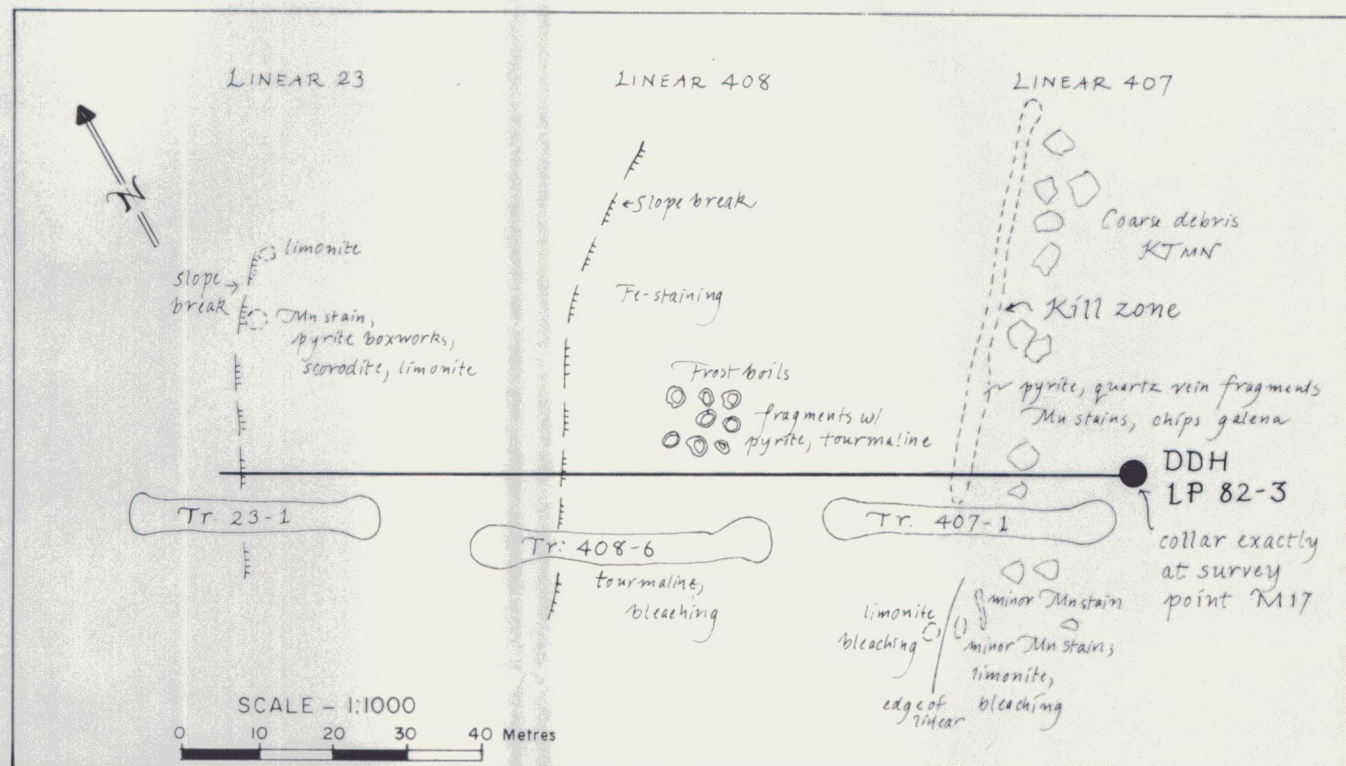 LINEAR 23
LINEAR 408
LINEAR 407
N
limonite
slope
break
Mn stain,
pyrite boxworks,
scorodite, limonite
Slope break
Fe-staining
Frost boils
fragments w/
pyrite, tourmaline
Coarse debris
KTMN
Kill zone
pyrite, quartz vein fragments
Mn stains, chips galena
DDH
LP 82-3
collar exactly
at survey
point M17
Tr. 23-1
Tr. 408-6
tourmaline,
bleaching
Tr. 407-1
limonite
bleaching
edge of
linear
minor Mn stain
minor Mn stain,
limonite,
bleaching
SCALE - 1:1000
0 10 20 30 40 Metres